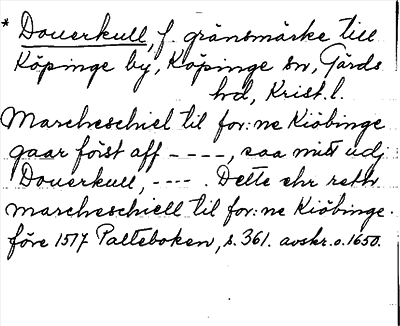 * Douerkull, f. gränsmärke till
Köpinge by, Köpinge sn, Gärds
hd, Krist. l.
Marcheschiel til for:ne Kiöbinge
gaar först aff ----, saa mitt udj
Douerkull, ----. Dette ehr rett
marcheschiell til for:ne Kiöbinge.
före 1517 Palteboken, s. 361. avskr. o. 1650.